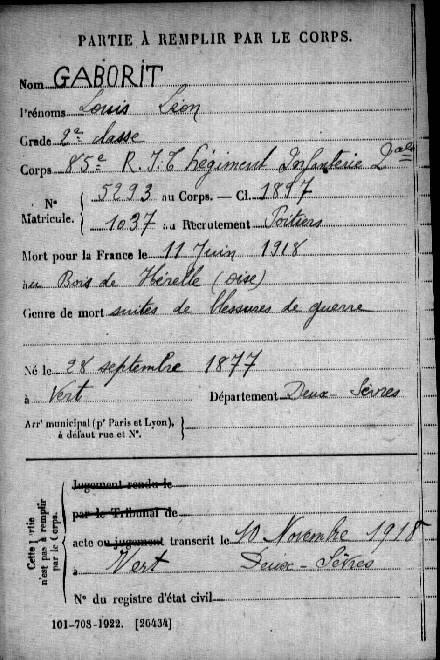 PARTIE À REMPLIR PAR LE CORPS.
Nom GABORIT
Prénoms Louis Léon
Grade 2e classe
Corps 85e R.I.T Régiment Infanterie
N° Matricule. { 5293 au Corps. — Cl. 1897
1037 au Recrutement Poitiers
Mort pour la France le 11 Juin 1918
au Bois de Hérelle (Oise)
Genre de mort suites de blessures de guerre
Né le 28 septembre 1877
à Vert Département Deux-Sèvres
Arrt municipal (pr Paris et Lyon), }
à défaut rue et N°.
Cette partie n'est pas à remplir par le Corps.
Jugement rendu le
par le Tribunal de
acte ou jugement transcrit le 10 Novembre 1918
à Vert Deux-Sèvres
N° du registre d'état civil
101-708-1922. [26434]